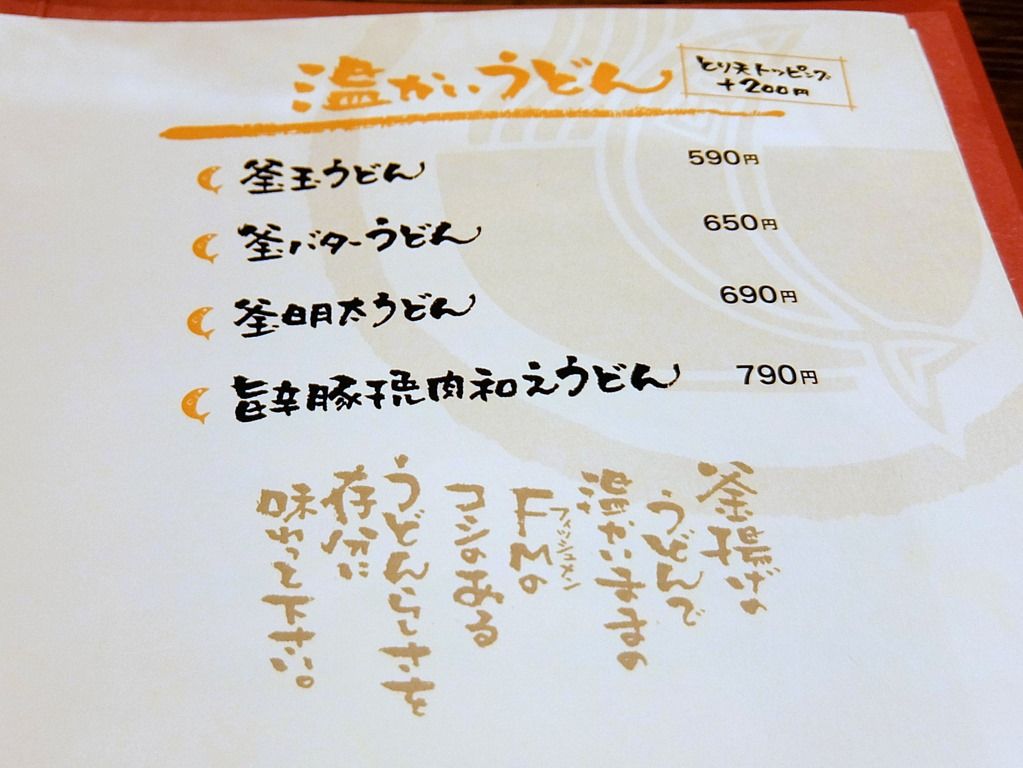 温かいうどん
とり天トッピング
+200円
釜玉うどん 590円
釜バターうどん 650円
釜明太うどん 690円
旨辛豚焼肉和えうどん 790円
釜揚げの
うどんで
温かいままの
FMの
フィッシュメン
コシのある
うどんらしさを
存分に
味わって下さい。